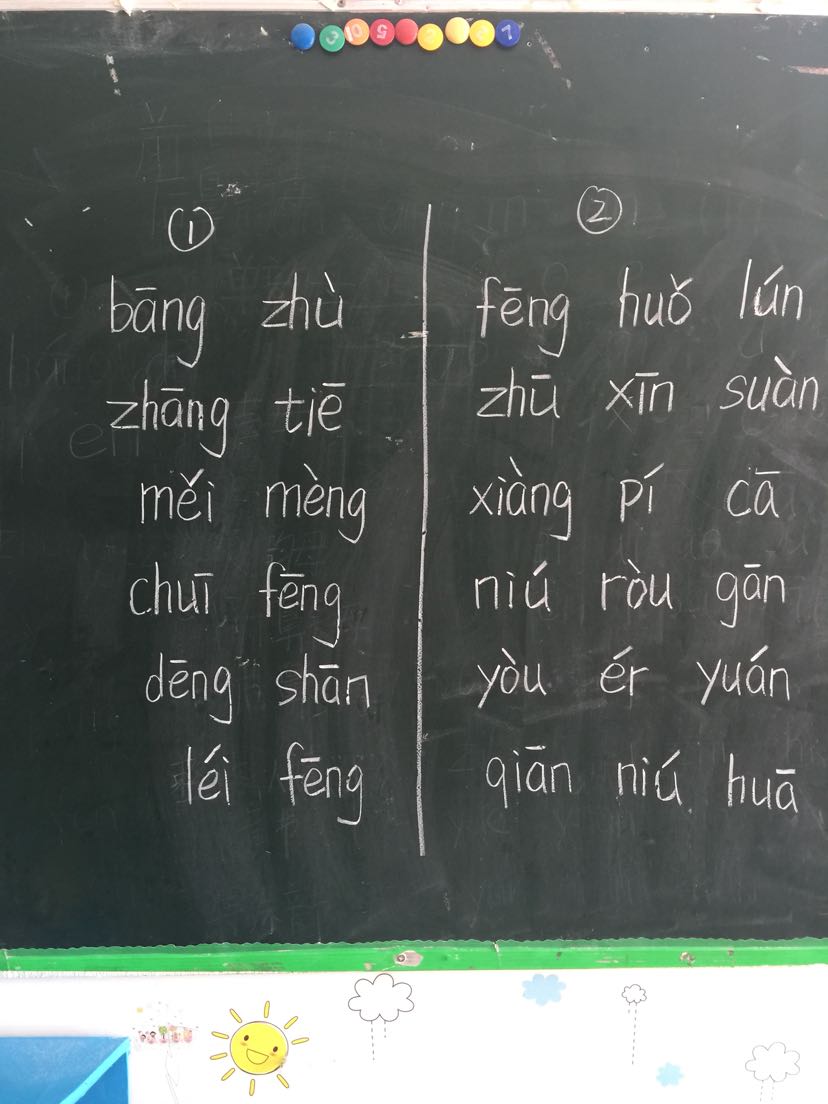 ①
bāng zhù
zhāng tiē
měi mèng
chuī fēng
dēng shān
léi fēng
②
fēng huǒ lún
zhū xīn suàn
xiàng pí cā
niú ròu gān
yòu ér yuán
qiān niú huā